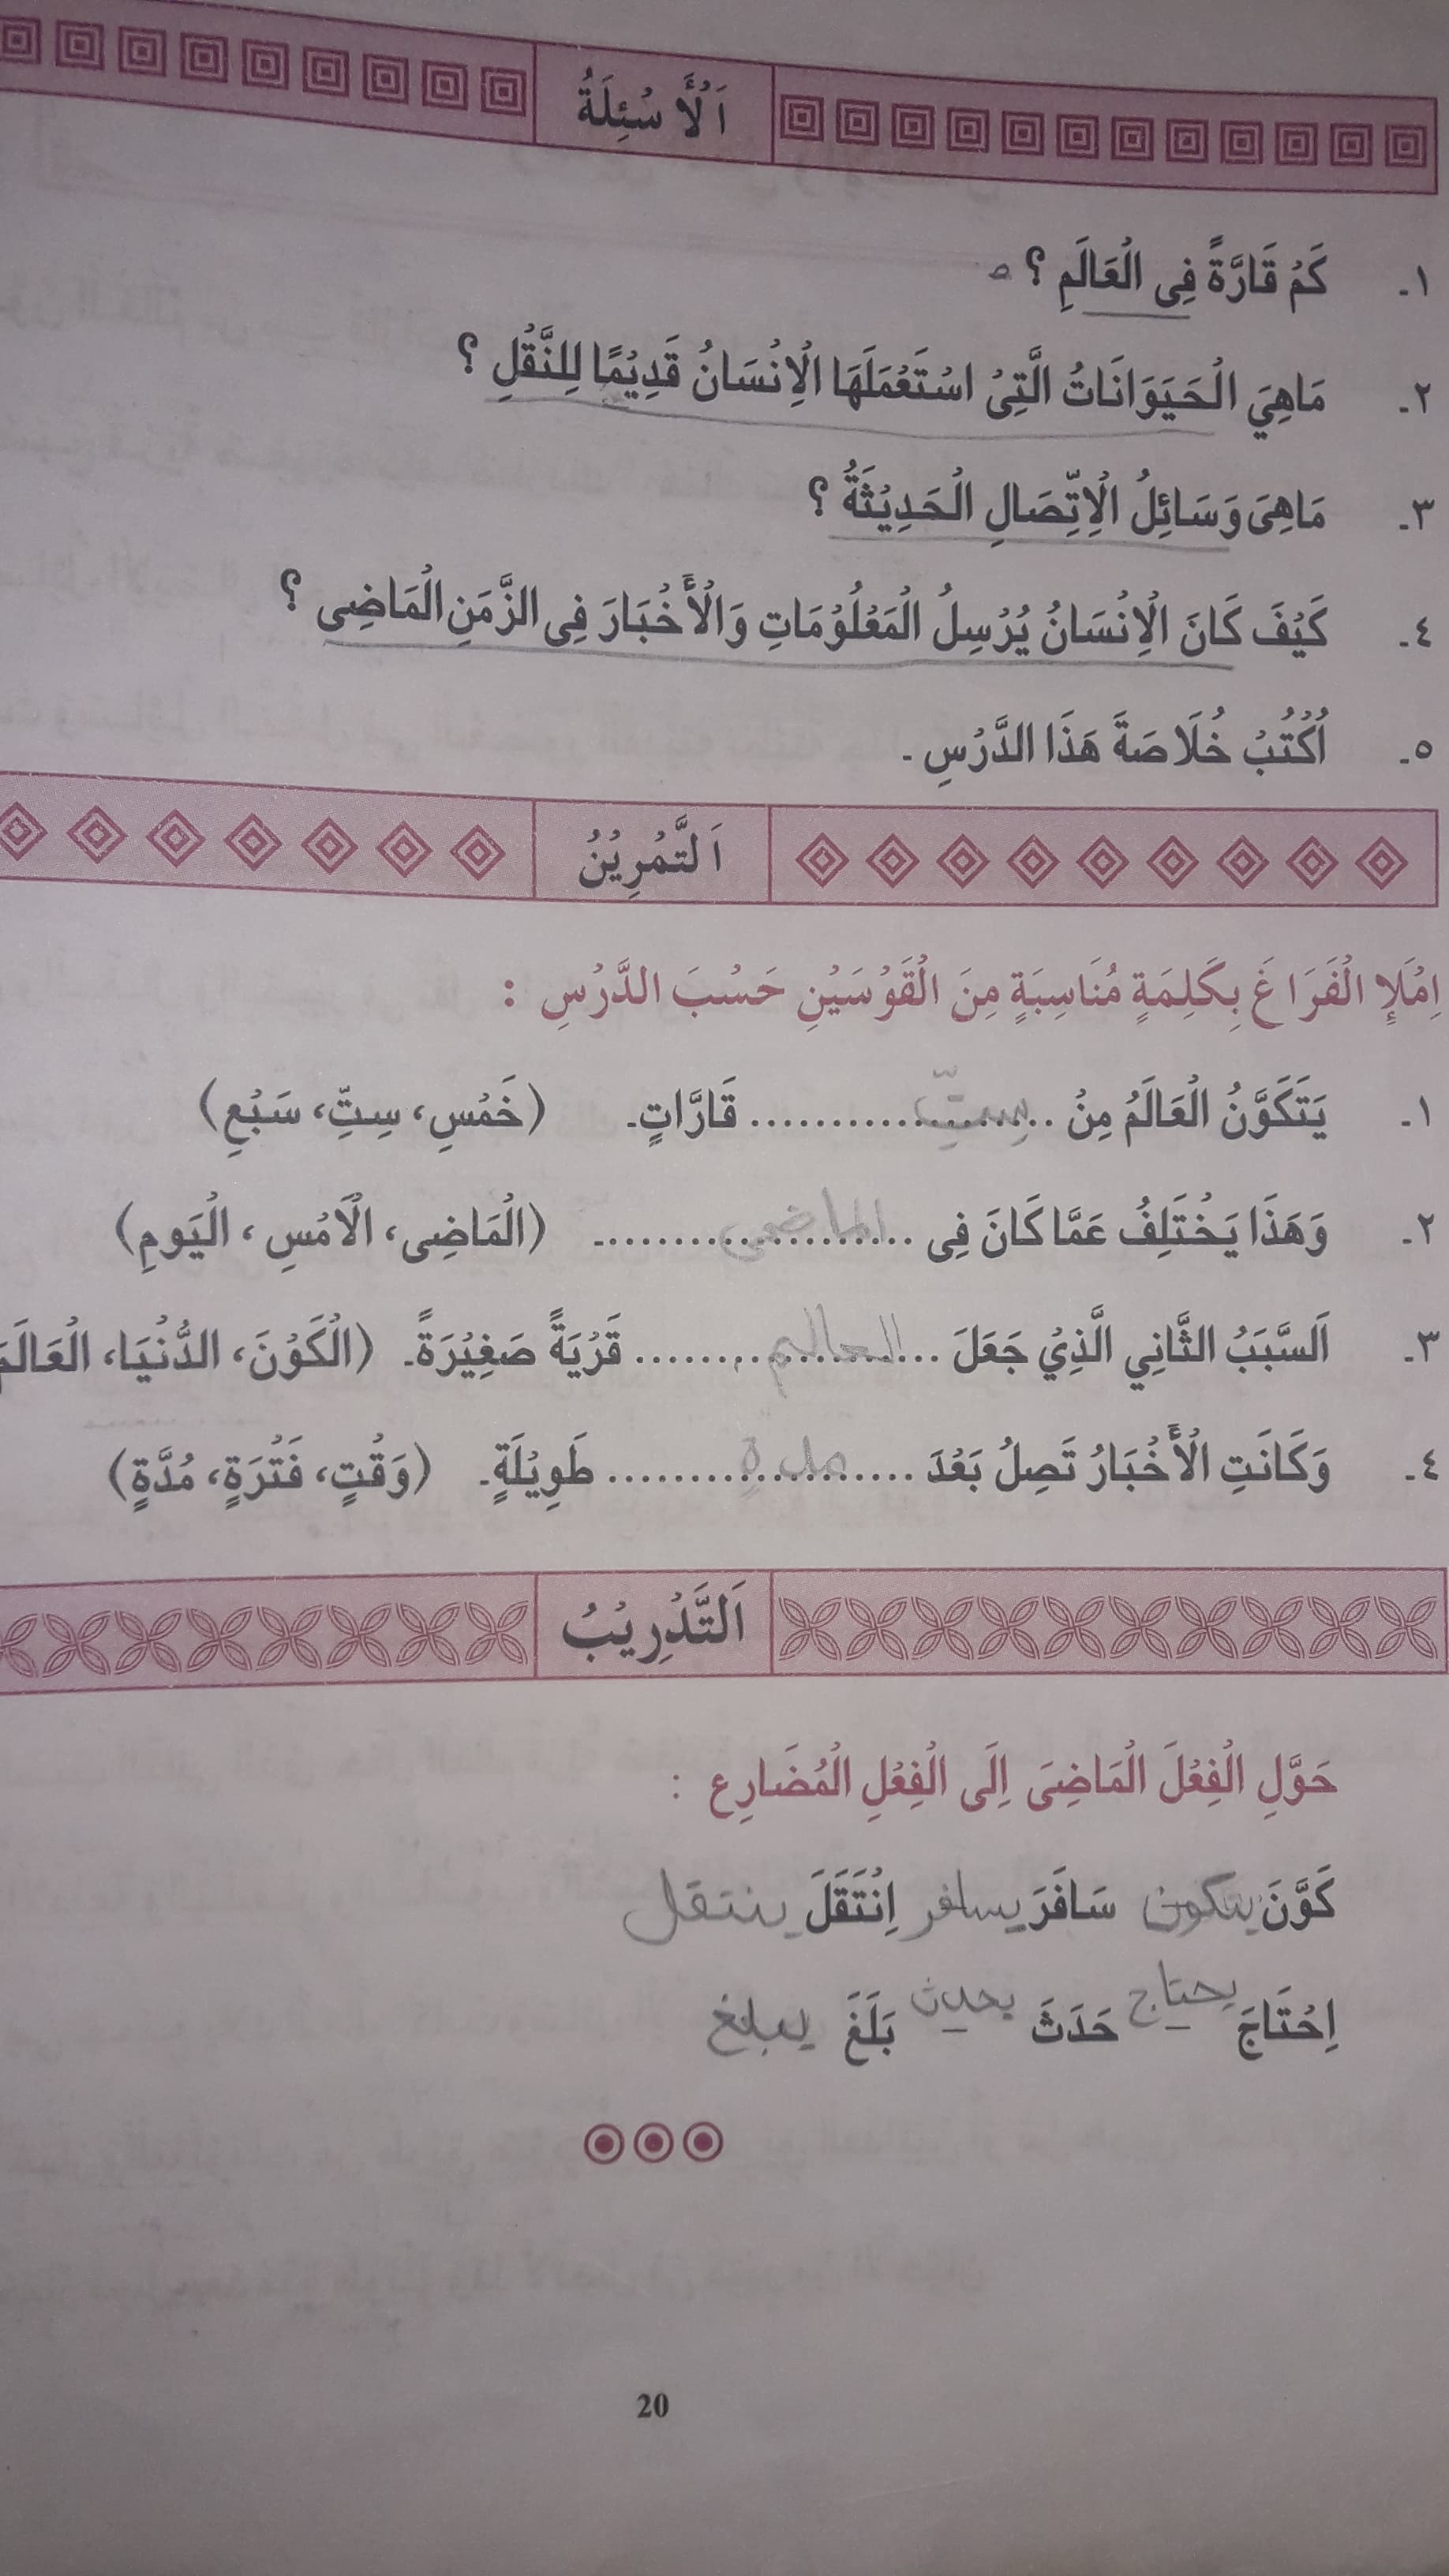 اَلْأَسْئِلَةُ
١ـ كَمْ قَارَّةً فِى الْعَالَمِ ؟
٢ـ مَاهِيَ الْحَيَوَانَاتُ الَّتِىْ اسْتَعْمَلَهَا الْاِنْسَانُ قَدِيْمًا لِلنَّقْلِ ؟
٣ـ مَاهِىَ وَسَائِلُ الْاِتِّصَالِ الْحَدِيْثَةُ ؟
٤ـ كَيْفَ كَانَ الْاِنْسَانُ يُرْسِلُ الْمَعْلُوْمَاتِ وَالْأَخْبَارَ فِى الزَّمَنِ الْمَاضِى ؟
٥ـ اُكْتُبْ خُلَاصَةَ هَذَا الدَّرْسِ ـ
اَلتَّمْرِيْنُ
اِمْلَإِ الْفَرَاغَ بِكَلِمَةٍ مُنَاسِبَةٍ مِنَ الْقَوْسَيْنِ حَسْبَ الدَّرْسِ :
١ـ يَتَكَوَّنُ الْعَالَمُ مِنْ ......ستِّ...... قَارَّاتٍ۔ (خَمْسِ، سِتِّ، سَبْعِ)
٢ـ وَهَذَا يَخْتَلِفُ عَمَّا كَانَ فِى ......الماضى......۔ (الْمَاضِى، الْاَمْسِ، الْيَومِ)
٣ـ اَلسَّبَبُ الثَّانِي الَّذِيْ جَعَلَ ......العالم...... قَرْيَةً صَغِيْرَةً۔ (الْكَوْنَ، الدُّنْيَا، الْعَالَمَ
٤ـ وَكَانَتِ الْأَخْبَارُ تَصِلُ بَعْدَ ......مدةٍ...... طَوِيْلَةٍ۔ (وَقْتٍ، فَتْرَةٍ، مُدَّةٍ)
اَلتَّدْرِيْبُ
حَوَّلِ الْفِعْلَ الْمَاضِىَ اِلَى الْفِعْلِ الْمُضَارِع :
كَوَّنَ يتكون سَافَرَ يسافر اِنْتَقَلَ ينتقل
اِحْتَاجَ يحتاج حَدَثَ يحدث بَلَغَ يبلغ
20